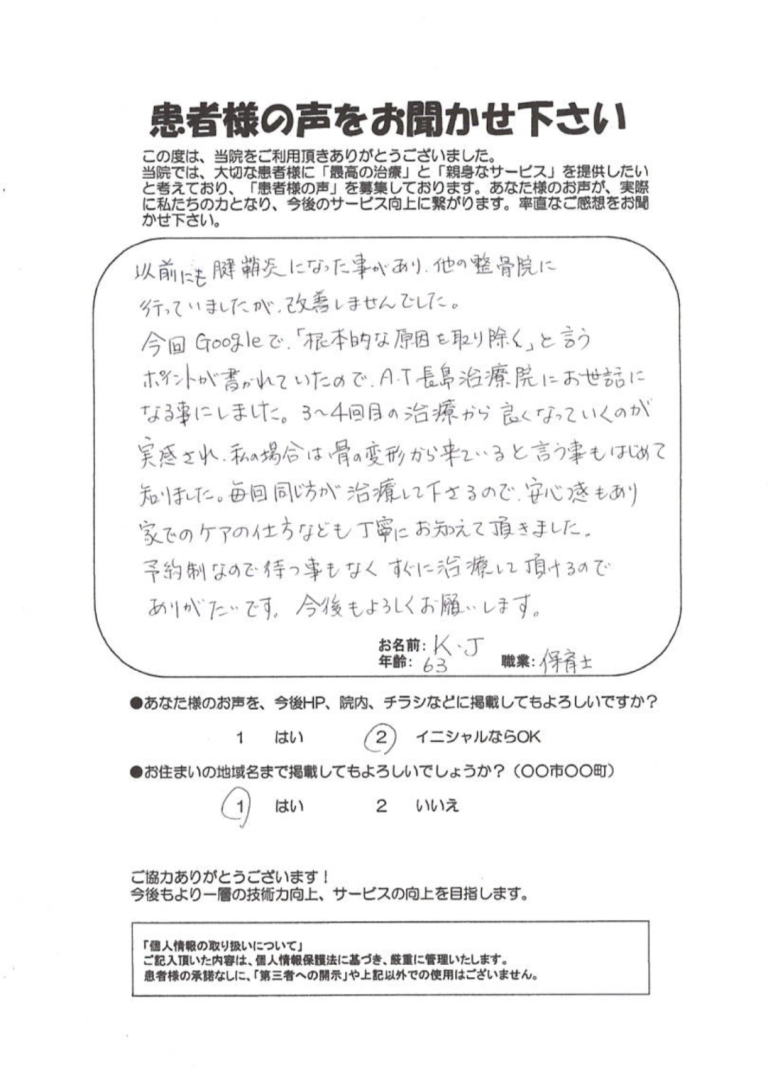 患者様の声をお聞かせ下さい
この度は、当院をご利用頂きありがとうございました。
当院では、大切な患者様に「最高の治療」と「親身なサービス」を提供したい
と考えており、「患者様の声」を募集しております。あなた様のお声が、実際
に私たちの力となり、今後のサービス向上に繋がります。率直なご感想をお聞
かせ下さい。
以前にも腱鞘炎になった事があり、他の整骨院に
行っていましたが、改善しませんでした。
今回Googleで、「根本的な原因を取り除く」と言う
ポイントが書かれていたので、A.T長島治療院にお世話に
なる事にしました。3〜4回目の治療から良くなっていくのが
実感され、私の場合は骨の変形から来ていると言う事もはじめて
知りました。毎回同じ方が治療して下さるので、安心感もあり
家でのケアの仕方なども丁寧にお知えて頂きました。
予約制なので待つ事もなくすぐに治療して頂けるので
ありがたいです。今後もよろしくお願いします。
お名前:K・J
年齢:63 職業:保育士
●あなた様のお声を、今後HP、院内、チラシなどに掲載してもよろしいですか?
1 はい 2 イニシャルならOK
●お住まいの地域名まで掲載してもよろしいでしょうか?(〇〇市〇〇町)
1 はい 2 いいえ
ご協力ありがとうございます!
今後もより一層の技術力向上、サービスの向上を目指します。
「個人情報の取り扱いについて」
ご記入頂いた内容は、個人情報保護法に基づき、厳重に管理いたします。
患者様の承諾なしに、「第三者への開示」や上記以外での使用はございません。